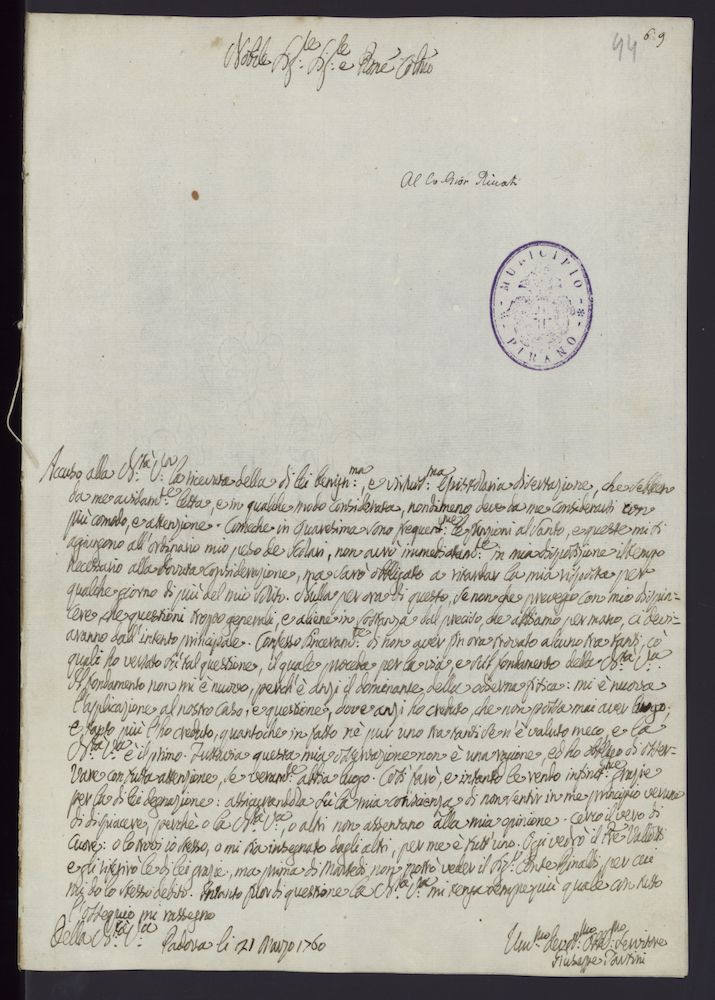 44 69
Nobile Sig:r Sig:r e Pron Colmo
Al Co: Gior: Riccati
MUNICIPIO
PIRANO
Accuso alla N:tà V:a la ricevuta della di lei benign:ma, e virtuos:ma epistolaria disertazione, che sebben
da me avidam:te letta, e in qualche modo considerata, nondimeno deve da me considerarsi con
più comodo, e attenzione. Comeche in Quaresima sono frequent:me le funzioni al Santo, e queste mi si
aggiungono all'ordinario mio peso de Scolari, non avrò immediatam:te in mia disposizione il tempo
necessario alla dovuta considerazione, ma sarò obbligato a ritardar la mia risposta per
qualche giorno di più del mio solito. Nulla per ora di questo, se non che prevego con mio dispia=
cere, che questioni troppo generali, e aliene in sostanza dal preciso, che abbiamo per mano, ci devi=
aranno dall'intento principale. Confesso sinceram:te di non aver fin ora trovato alcuno tra tanti, cò
quali ho versato sù tal questione, il quale proceda per la via, e sul fondamento della N:tà V:a
Il fondamento non mi è nuovo, perchè è anzi il dominante della odierna fisica: mi è nuova
l'applicazione al nostro caso, e questione, dove anzi ho creduto, che non possa mai aver luogo;
e tanto più l'ho creduto, quantoche in fatto nè pur uno tra tanti se n'è valuto meco, e la
N:tà V:a è il primo. Tuttavia questa mia osservazione non è una ragione, ed ho obbligo di osser=
vare con tutta attenzione, se veram:te abbia luogo. Così farò, e intanto le rendo infinit:me grazie
per la di lei degnazione: assicurandola sù la mia conscienza di non sentir in me principio veruno
di dispiacere, perchè o la N:tà V:a, o altri non assentano alla mia opinione. Cerco il vero di
cuore: o lo trovi io stesso, o mi sia insegnato dagli altri, per me è tutt'uno. Oggi vedrò il Pre Vallotti
e gli riferirò le di lei grazie, ma prima di Martedì non potrò veder il Sig:r Conte Rinaldi, per cui
mi dò lo stesso debito. Intanto fuor di questione la N:tà V:a mi tenga sempre qui quale con tutto
l'ossequio mi rassegno
Della N:tà V:a Padova li 21 Marzo 1760
Um:mo Devot:mo Obb:mo Servitore
Giuseppe Tartini